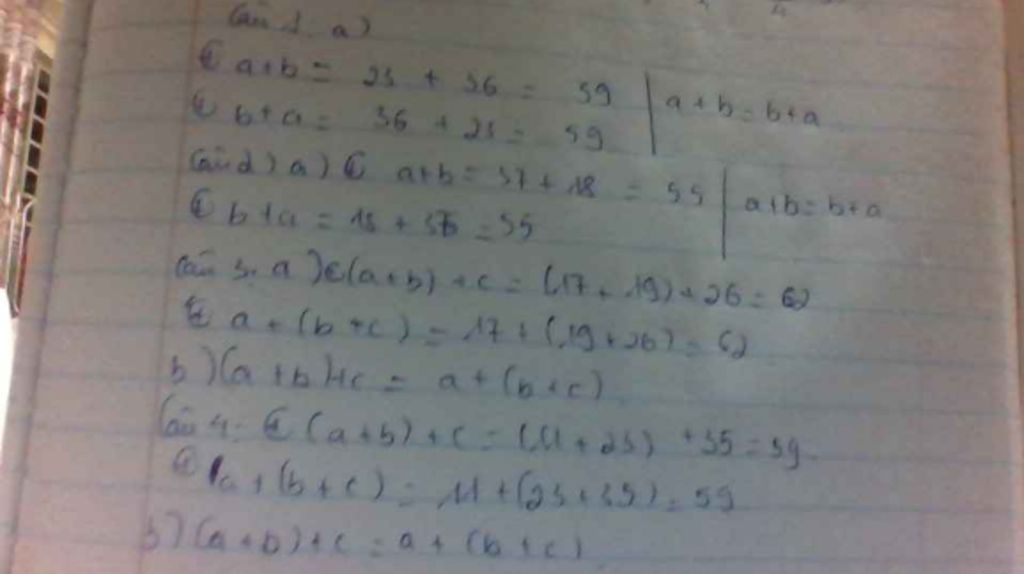 Câu 1. a)
a+b = 23 + 36 = 59 | a+b = b+a
b+a = 36 + 23 = 59
Câu 2) a) a+b = 37 + 18 = 55 | a+b = b+a
b+a = 18 + 37 = 55
Câu 3. a) (a+b) + c = (17 + 19) + 26 = 62
a + (b+c) = 17 + (19 + 26) = 62
b) (a + b) + c = a + (b + c)
Câu 4: (a+b) + c = (11 + 23) + 35 = 59
a + (b + c) = 11 + (23 + 35) = 59
b) (a+b) + c = a + (b + c)